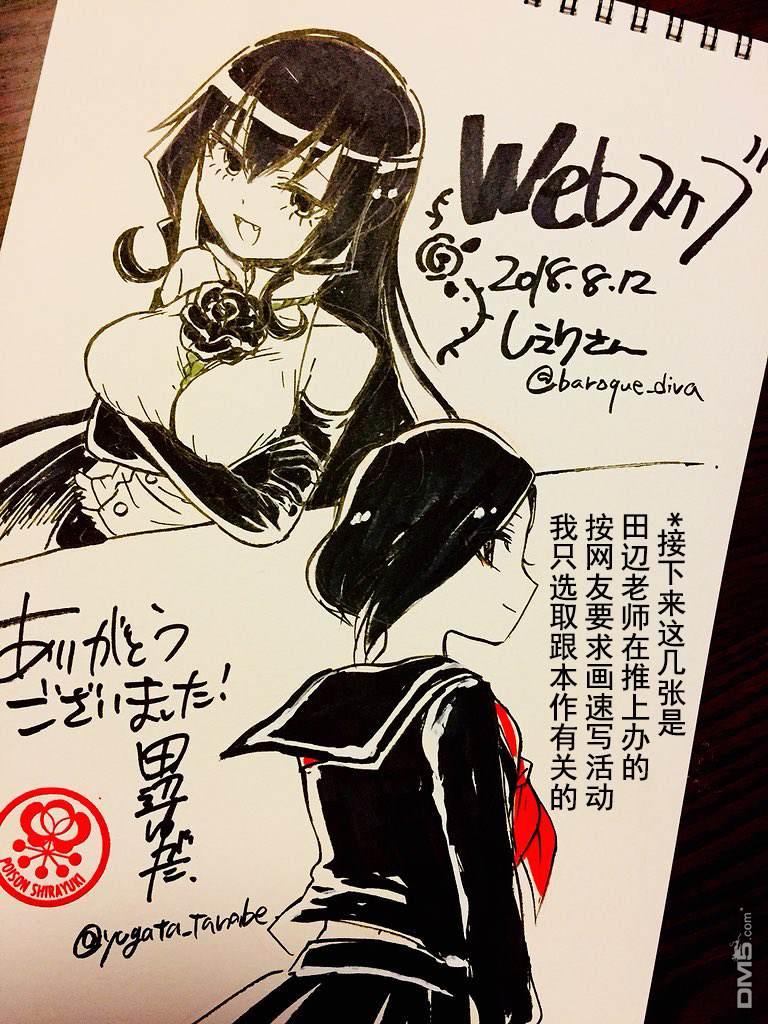 Webスケブ
2018.8.12
しえりさん
@baroque_diva
*接下来这几张是
田辺老师在推上办的
按网友要求画速写活动
我只选取跟本作有关的
ありがとう
ございました!
田辺ゆがた.
POISON SHIRAYUKI
@yugata_tanabe
DM5.com